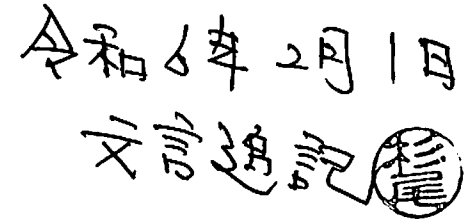 令和6年2月1日
文言追記 杉尾